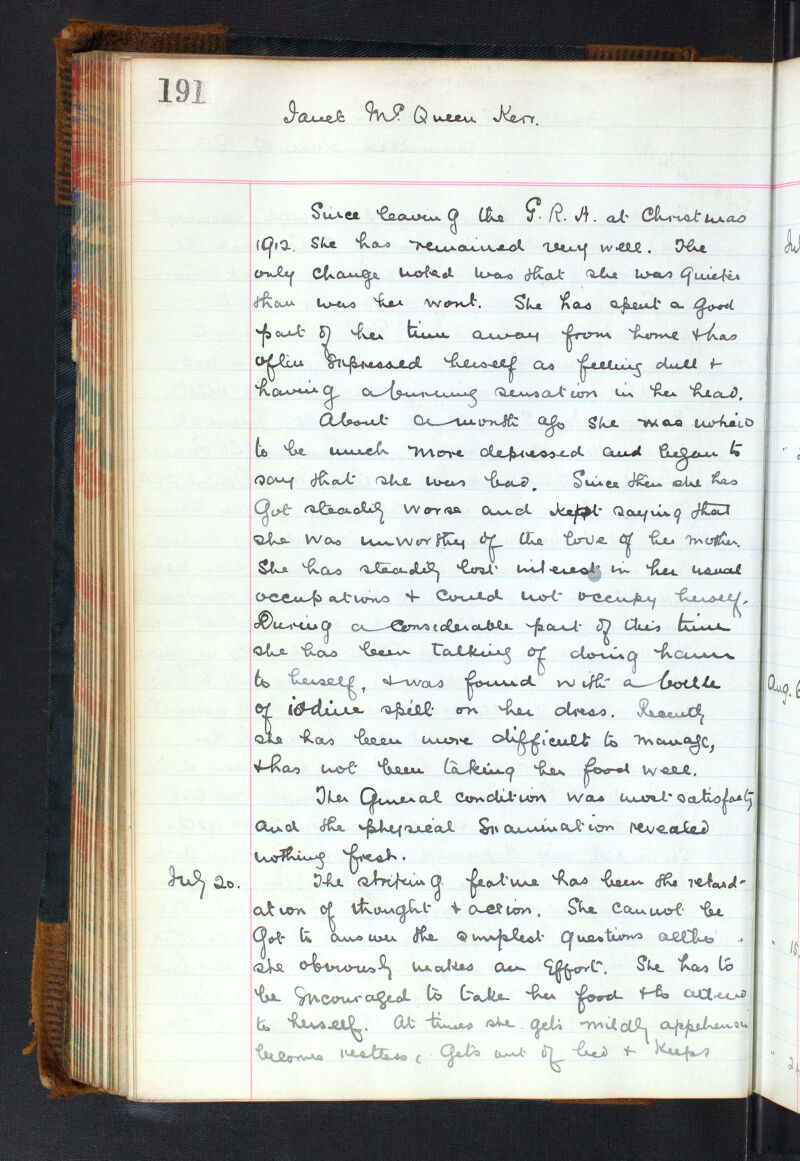 191
Janet Mc. Queen Kerr.
Since leaving the G.R.A. at Christmas
1912. She has remained very well. The
only change noted was that she was quieter
than was her wont. She has spent a good
part of her time away from home & has
often expressed herself as feeling dull &
having a burning sensation in her head.
About a month ago she was noticed
to be much more depressed and began to
say that she was bad. Since then she has
got steadily worse and kept saying that
she was unworthy of the love of her mother.
She has steadily lost interest in her usual
occupations & could not occupy herself.
During a considerable part of this time
she has been talking of doing harm
to herself, & was found with a bottle
of iodine spilt on her dress. Recently
she has been more difficult to manage,
& has not been taking her food well.
Her General condition was most satisfacty
and the physical Examination revealed
nothing fresh.
July 20. The striking feature has been the retard-
ation of thought & action. She cannot be
got to answer the simplest questions altho
she obviously makes an effort. She has to
be encouraged to take her food & to attend
to herself. At times she gets mildly appehensiv
becomes restless, Gets out of bed & keeps
Jul
Aug. 6
" 15
" 2